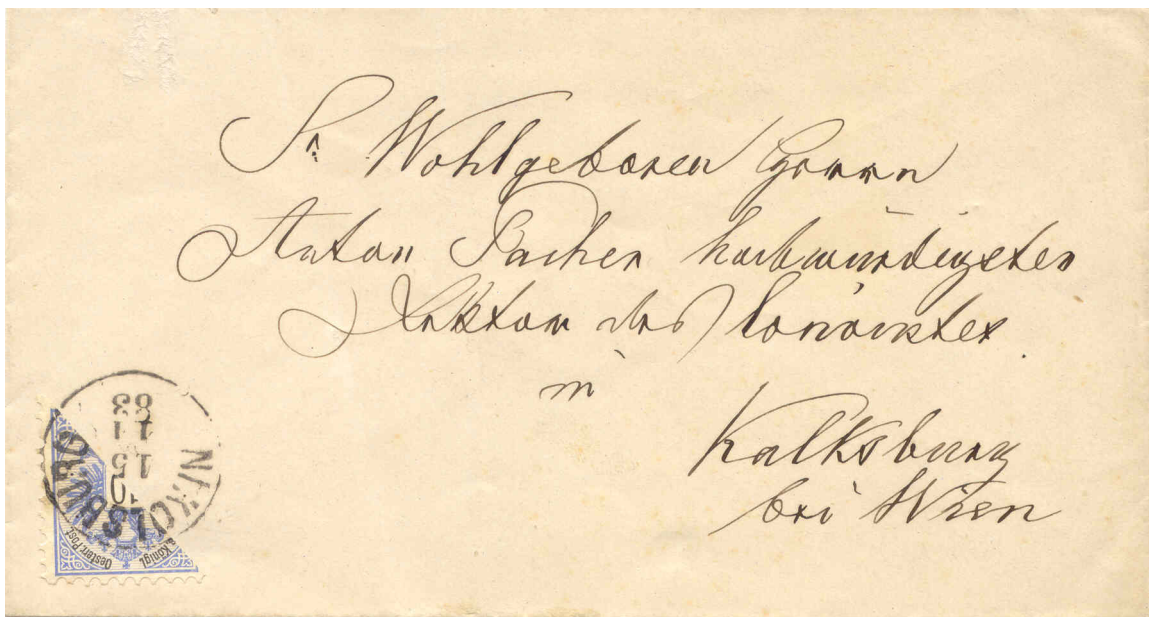 Sr Wohlgeboren Herrn
Anton Pacher hochwürdigsten
Rektor des Convictes
in
Kalksburg
bei Wien
NIKOLSBURG
15
11
83
10
Königl.
Oesterr. Post